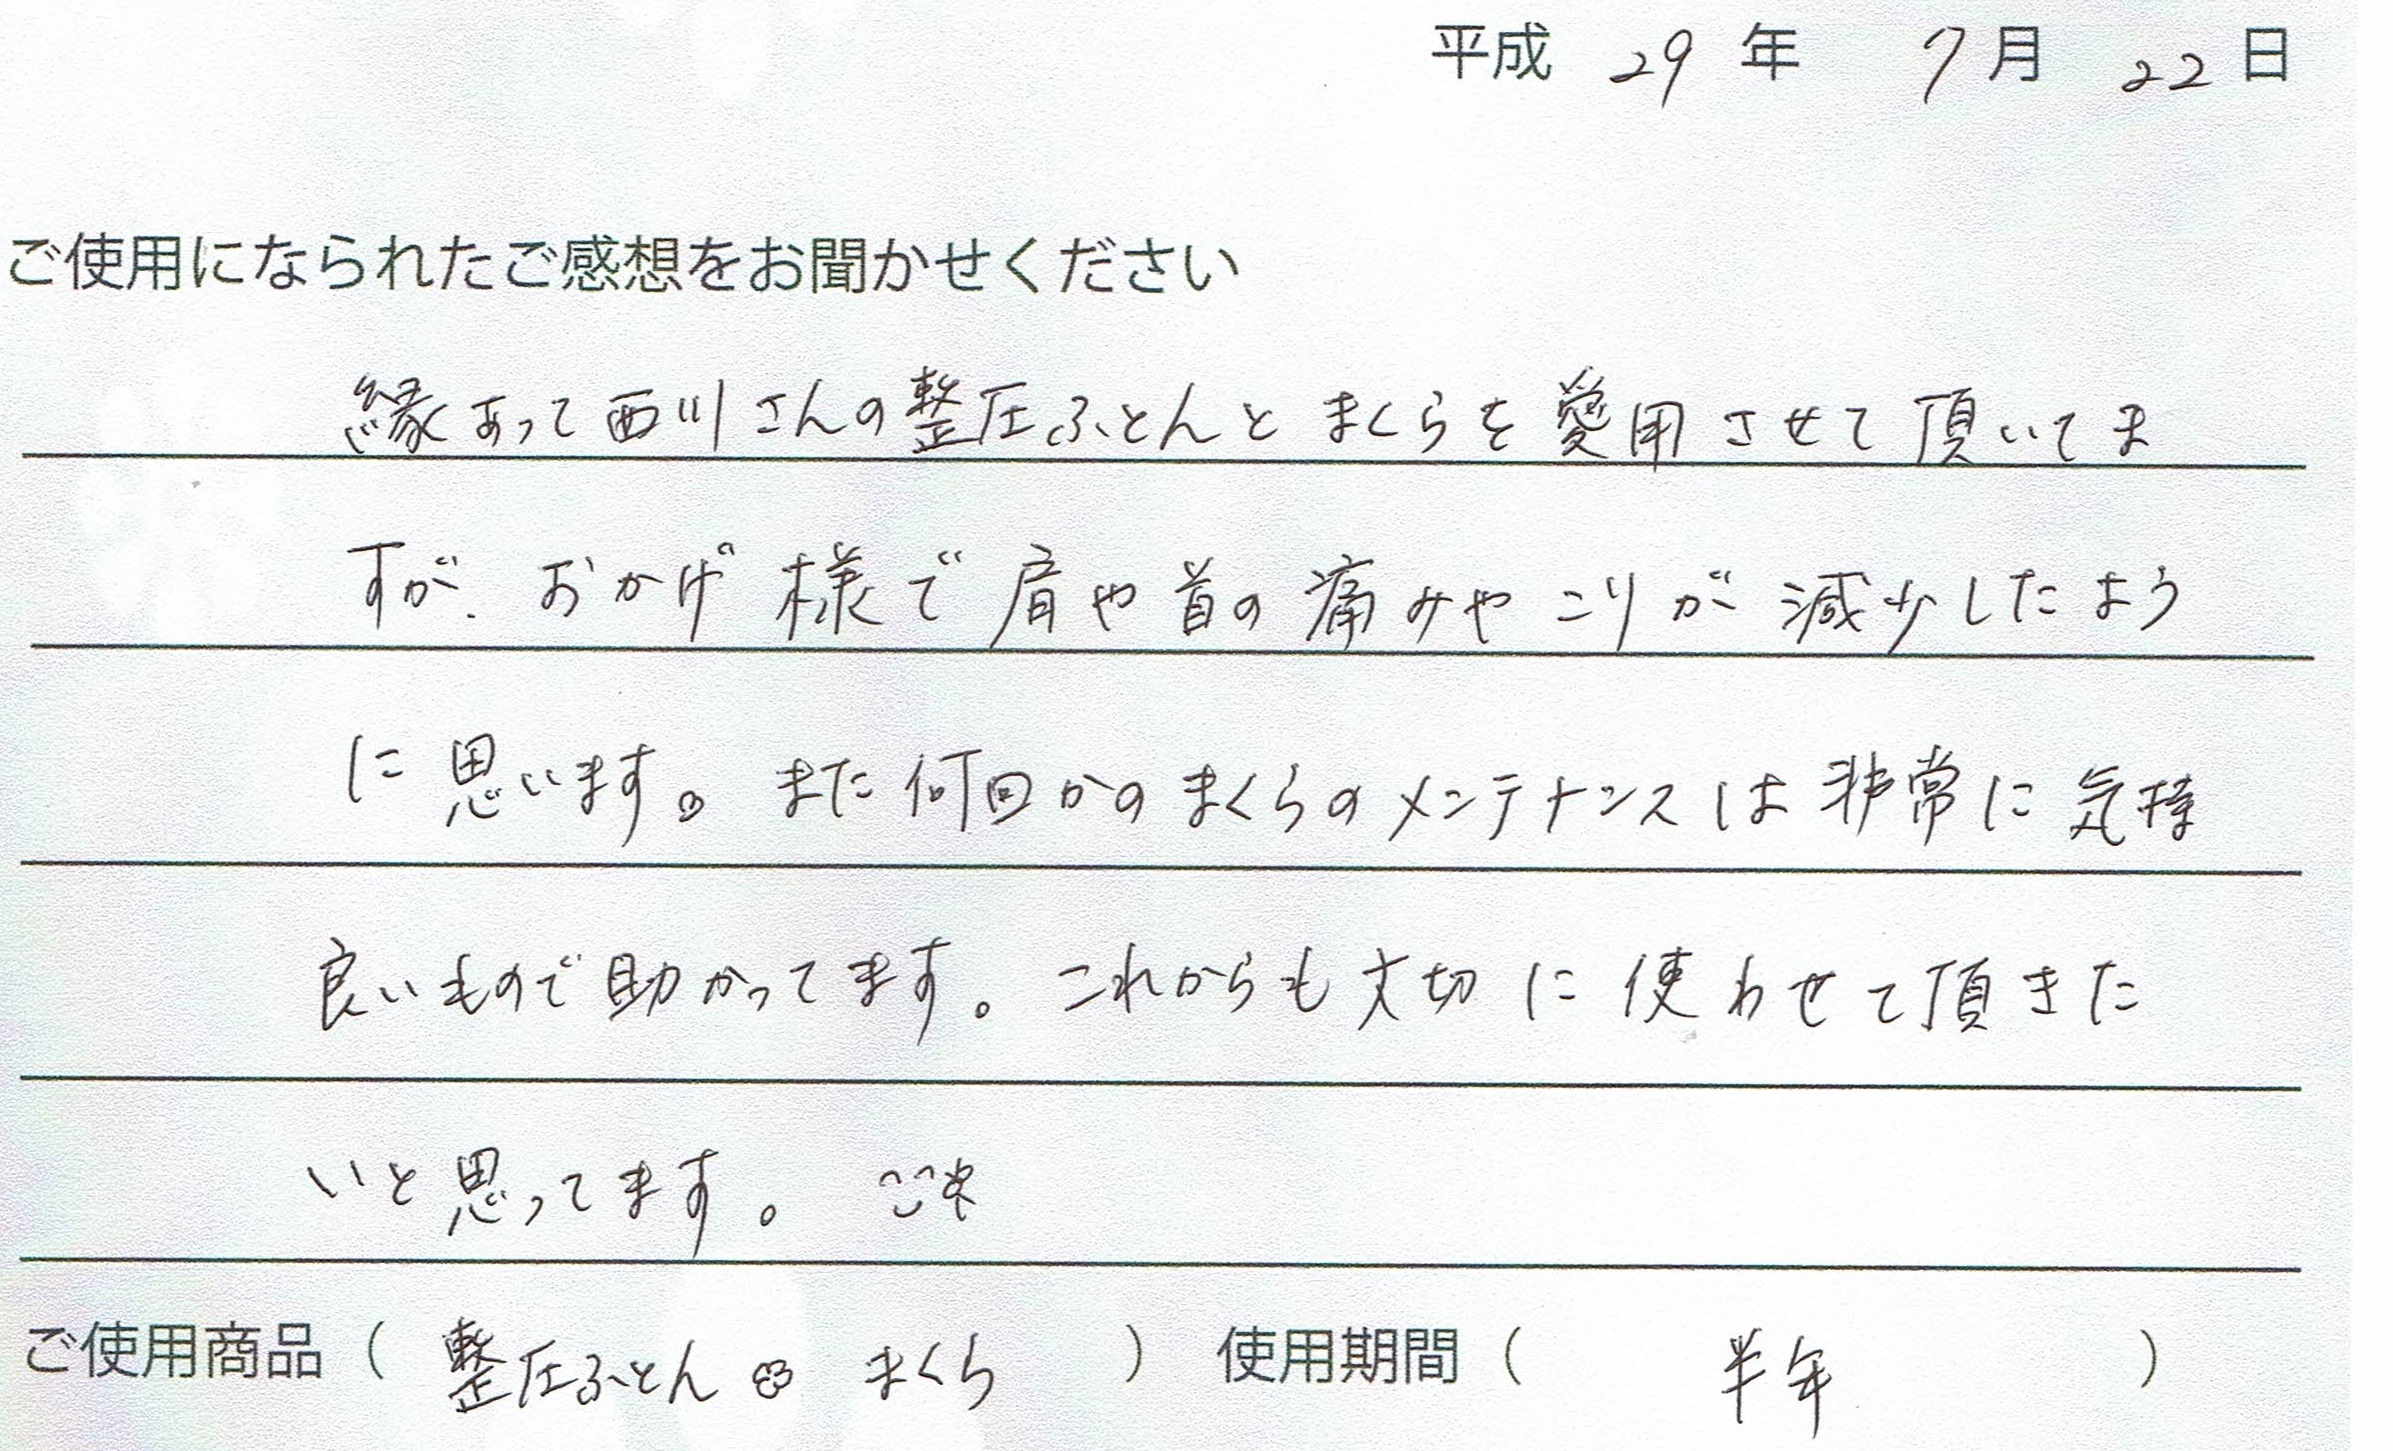 平成 29 年 7 月 22 日
ご使用になられたご感想をお聞かせください
縁あって西川さんの整圧ふとんとまくらを愛用させて頂いてま
すが、おかげ様で肩や首の痛みやこりが減少したよう
に思います。また何回かのまくらのメンテナンスは非常に気持
良いもので助かってます。これからも大切に使わせて頂きた
いと思ってます。
ご使用商品（ 整圧ふとん まくら ） 使用期間（ 半年 ）